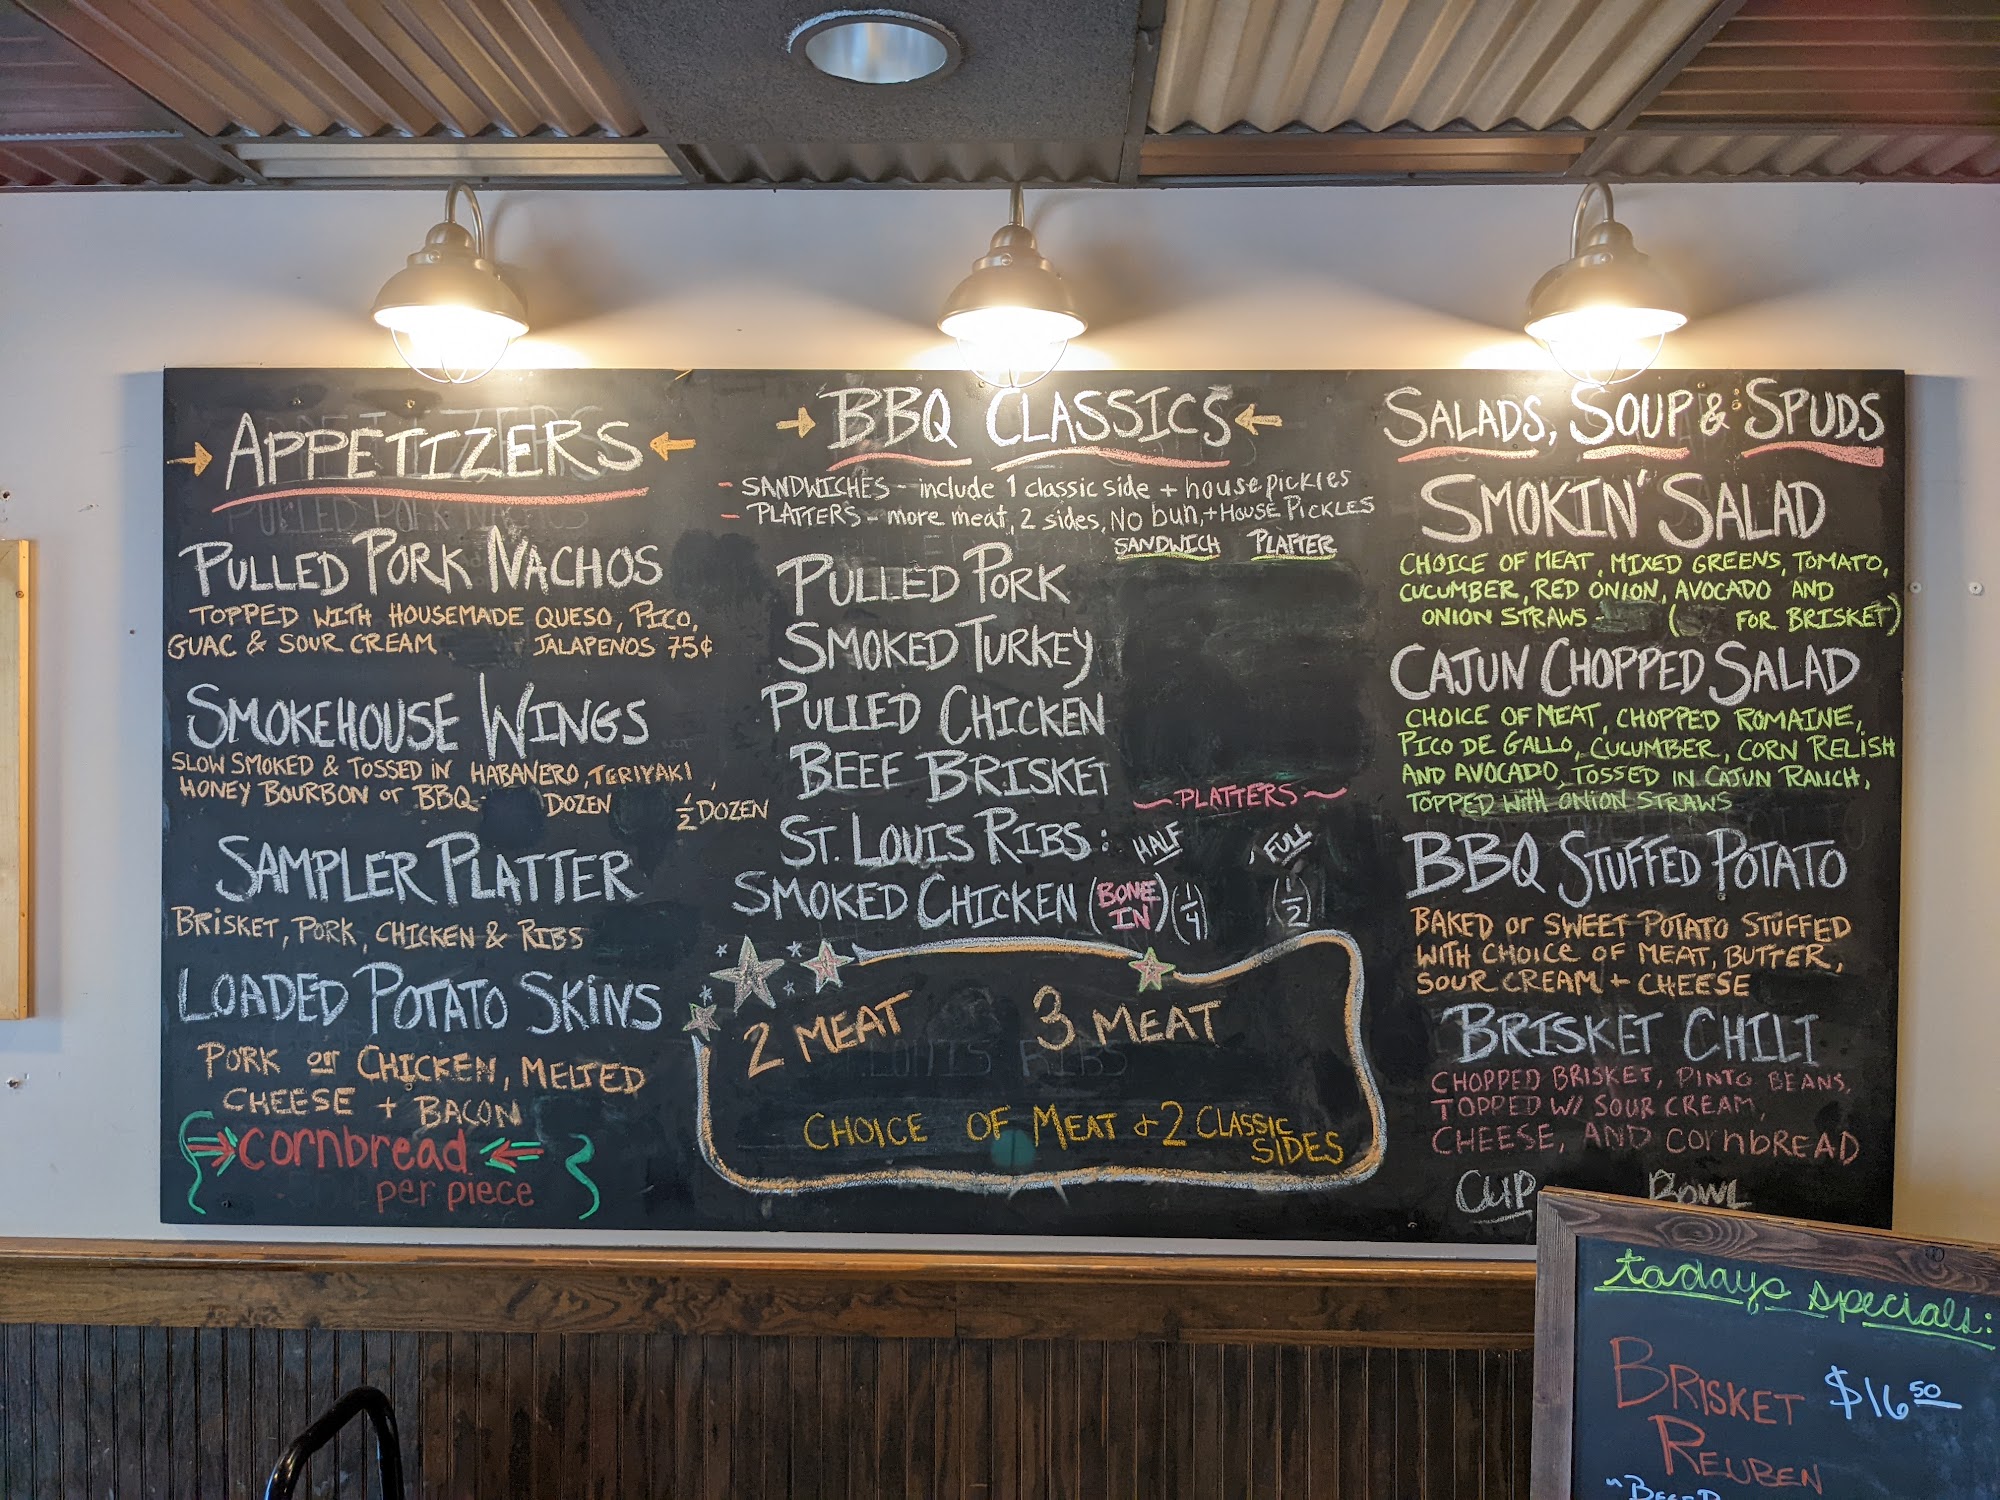 APPETIZERS
PULLED PORK NACHOS
TOPPED WITH HOUSEMADE QUESO, PICO,
GUAC & SOUR CREAM JALAPENOS 75¢
SMOKEHOUSE WINGS
SLOW SMOKED & TOSSED IN HABANERO, TERIYAKI,
HONEY BOURBON or BBQ- DOZEN 1/2 DOZEN
SAMPLER PLATTER
BRISKET, PORK, CHICKEN & RIBS
LOADED POTATO SKINS
PORK or CHICKEN, MELTED
CHEESE + BACON
cornbread
per piece
BBQ CLASSICS
- SANDWICHES - include 1 classic side + house pickles
- PLATTERS - more meat, 2 sides, NO bun, + HOUSE PICKLES
SANDWICH PLATTER
PULLED PORK
SMOKED TURKEY
PULLED CHICKEN
BEEF BRISKET
~PLATTERS~
ST. LOUIS RIBS: HALF , FULL
SMOKED CHICKEN (BONE IN) (1/4) (1/2)
2 MEAT 3 MEAT
CHOICE OF MEAT & 2 CLASSIC
SIDES
SALADS, SOUP & SPUDS
SMOKIN' SALAD
CHOICE OF MEAT, MIXED GREENS, TOMATO,
CUCUMBER, RED ONION, AVOCADO AND
ONION STRAWS - ( FOR BRISKET)
CAJUN CHOPPED SALAD
CHOICE OF MEAT, CHOPPED ROMAINE,
PICO DE GALLO, CUCUMBER, CORN RELISH
AND AVOCADO, TOSSED IN CAJUN RANCH,
TOPPED WITH ONION STRAWS
BBQ STUFFED POTATO
BAKED or SWEET POTATO STUFFED
WITH CHOICE OF MEAT, BUTTER,
SOUR CREAM + CHEESE
BRISKET CHILI
CHOPPED BRISKET, PINTO BEANS,
TOPPED W/ SOUR CREAM,
CHEESE, AND CORNBREAD
CUP BOWL
todays specials:
BRISKET $16.50
REUBEN